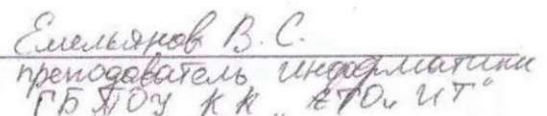 Емельянов В. С.
преподаватель информатики
ГБПОУ КК „ЕТОиИТ"